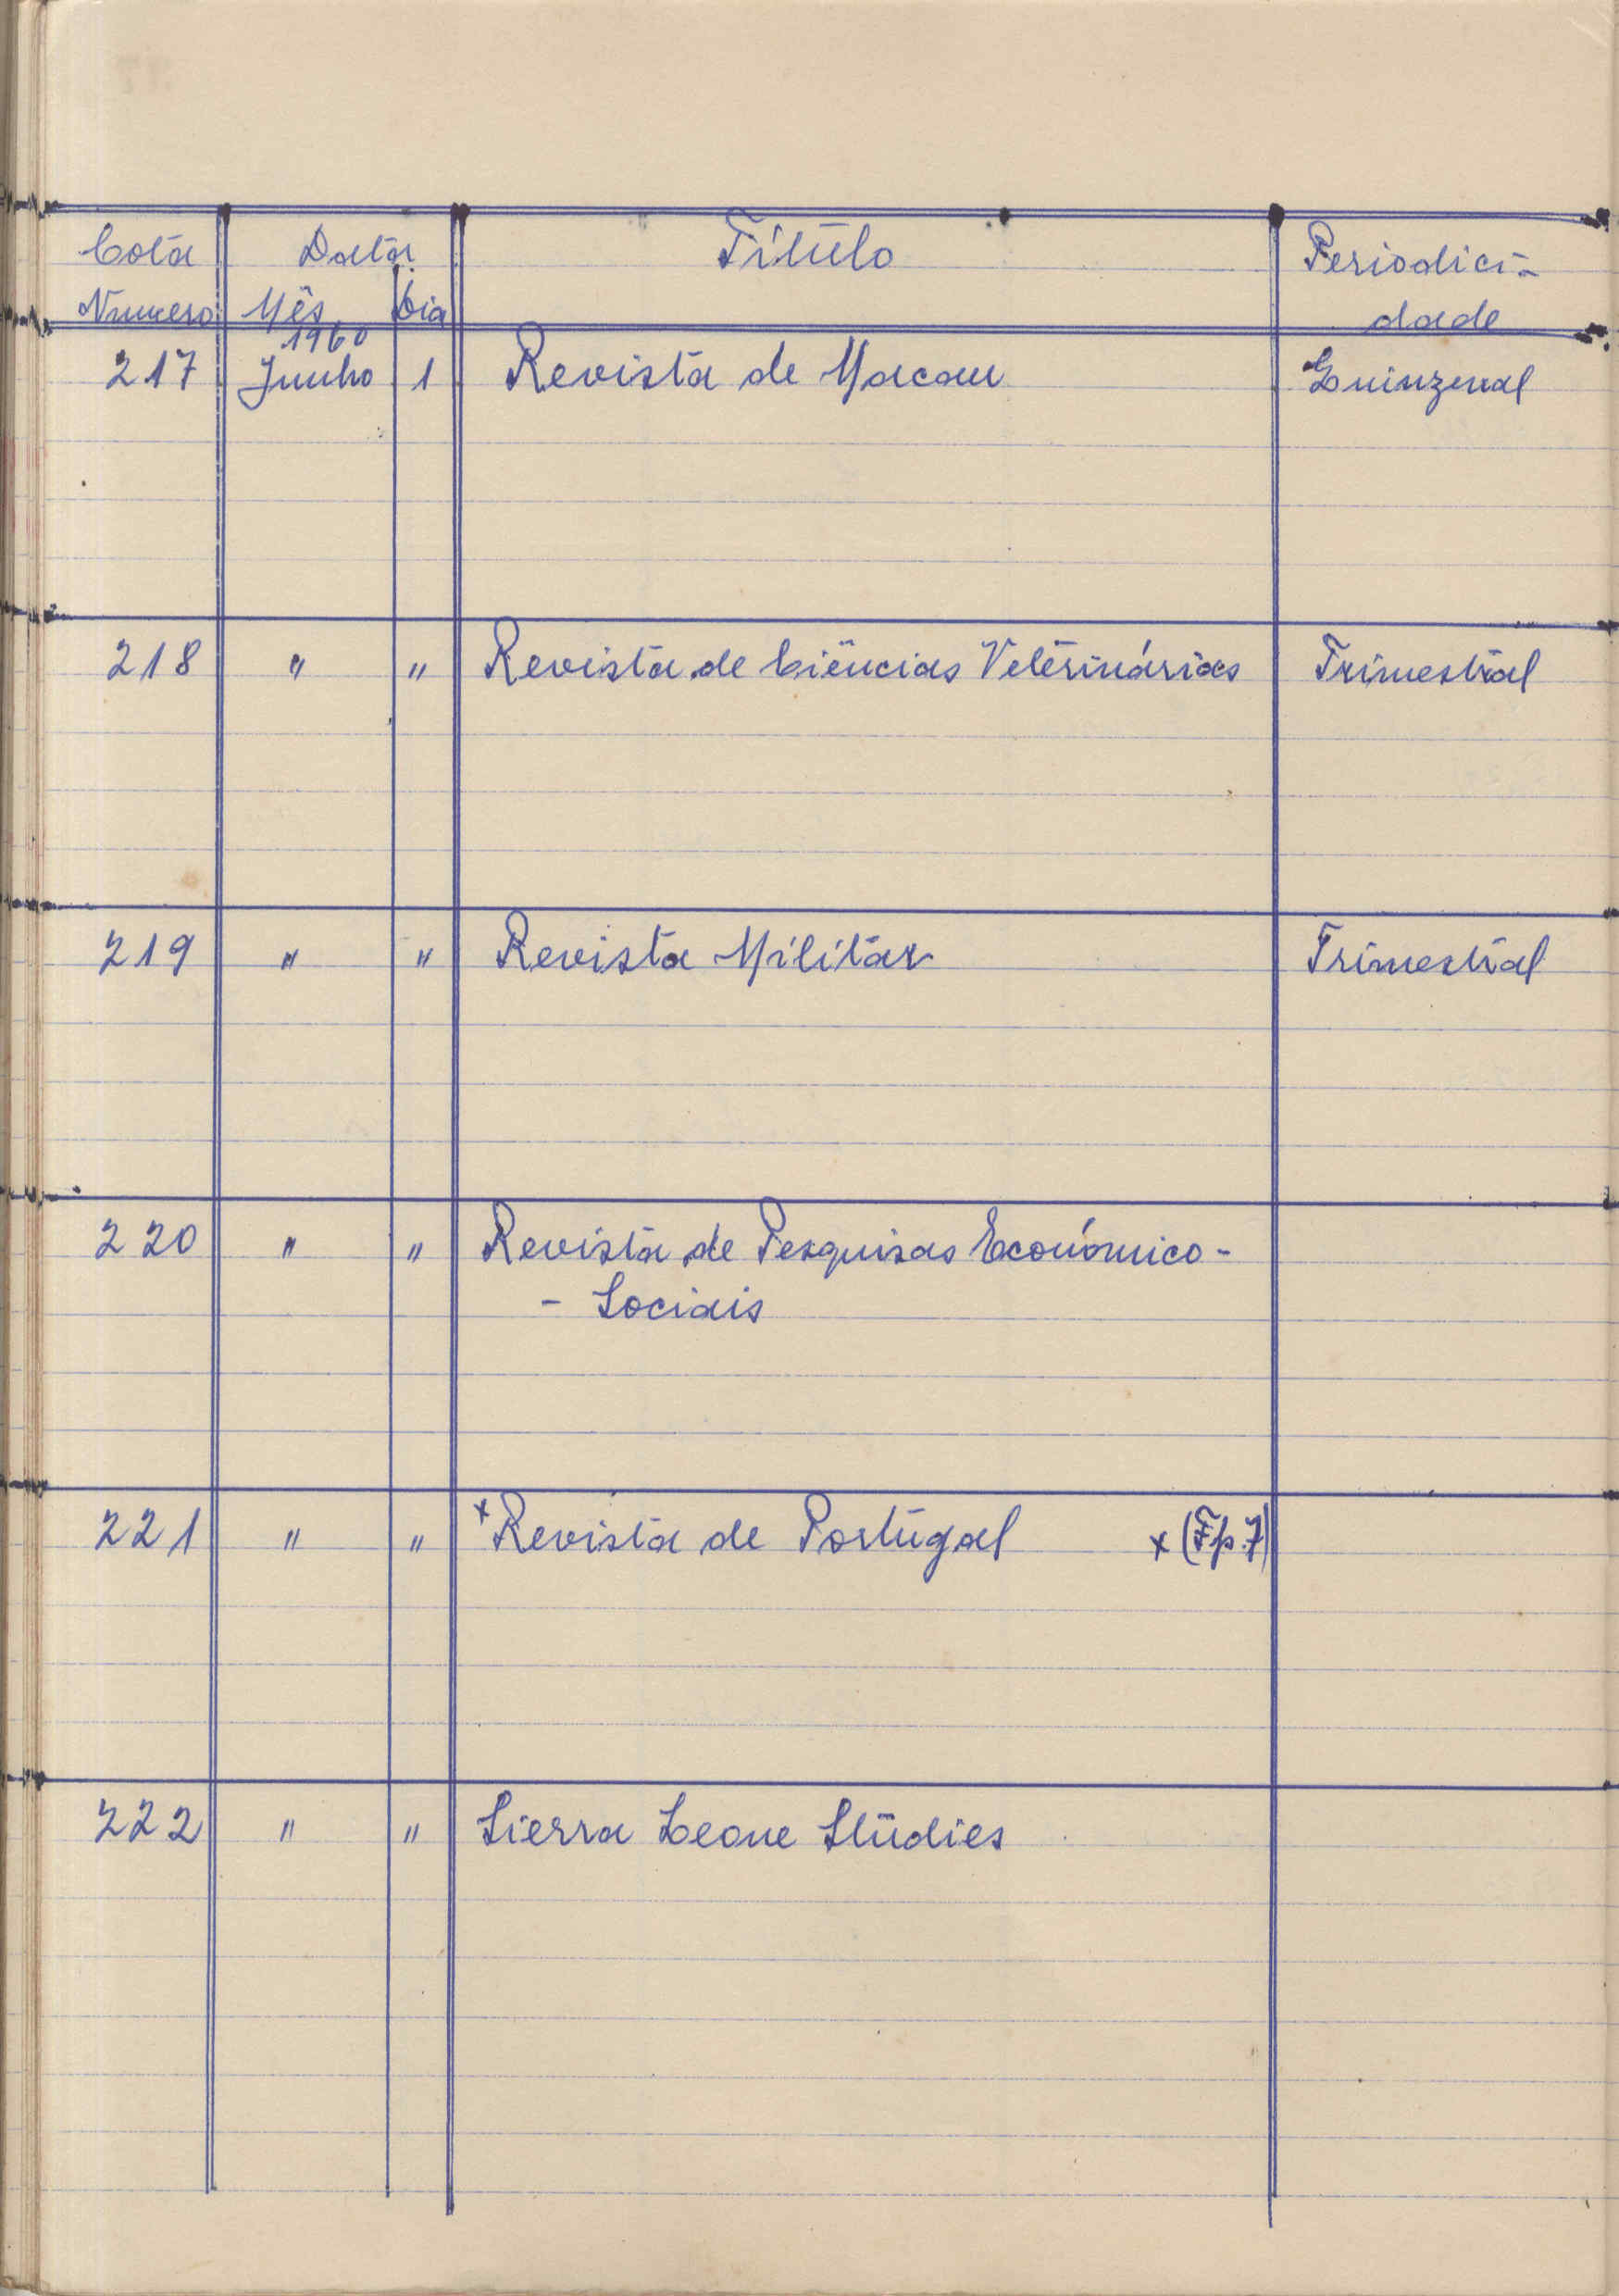 Cota Data Título Periodici-
Numero Mês Dia dade
1960
217 Junho 1 Revista de Macau Quinzenal
218 " " Revista de Ciências Veterinárias Trimestral
219 " " Revista Militar Trimestral
220 " " Revista de Pesquisas Económico-
- Sociais
221 " " x Revista de Portugal x (Fp.7)
222 " " Sierra Leone Studies